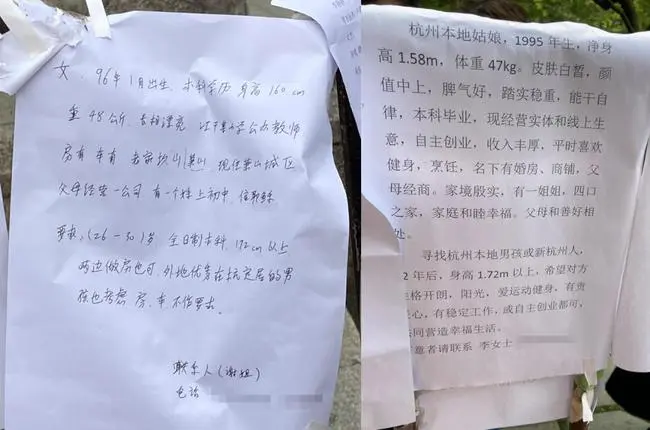 女，96年1月出生，本科学历 身高160cm
重48公斤，长相漂亮，
房有 车有 老家
父母经营一公司 有一个妹上初中，
要求：(26－30)岁，全日制本科，172cm以上
两边做房也可，外地优秀在杭定居的男
孩也考虑 房、车 不作要求。
联系人（谢姐）
电话
杭州本地姑娘，1995年生，净身
高1.58m，体重47kg。皮肤白皙，颜
值中上，脾气好，踏实稳重，能干自
律，本科毕业，现经营实体和线上生
意，自主创业，收入丰厚，平时喜欢
健身，烹饪，名下有婚房、商铺，父
母经商。家境殷实，有一姐姐，四口
之家，家庭和睦幸福。父母和善好相
处。
寻找杭州本地男孩或新杭州人，
2年后，身高1.72m以上，希望对方
格开朗，阳光，爱运动健身，有责
心，有稳定工作，或自主创业都可，
同营造幸福生活。
意者请联系 李女士